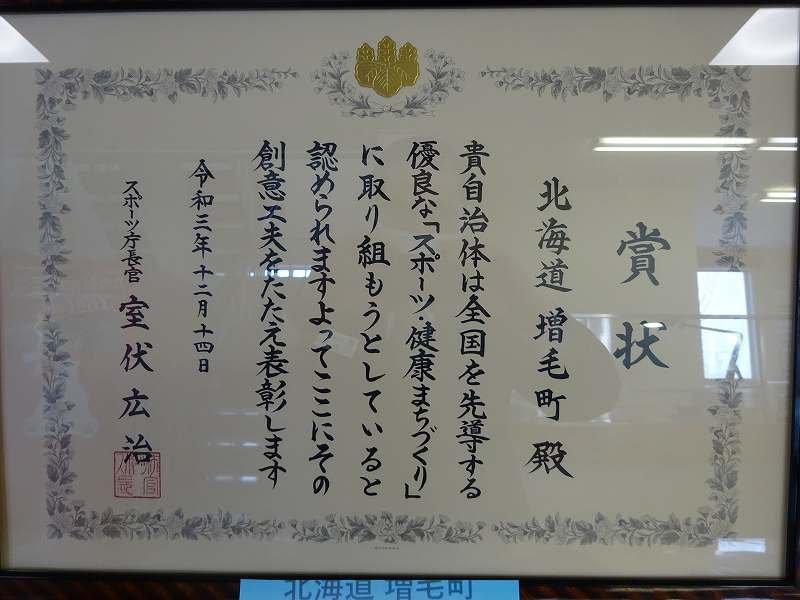 賞状
北海道 増毛町 殿
貴自治体は全国を先導する
優良な「スポーツ・健康まちづくり」
に取り組もうとしていると
認められますよってここにその
創意工夫をたたえ表彰します
令和三年十二月十四日
スポーツ庁長官 室伏広治
北海道 増毛町